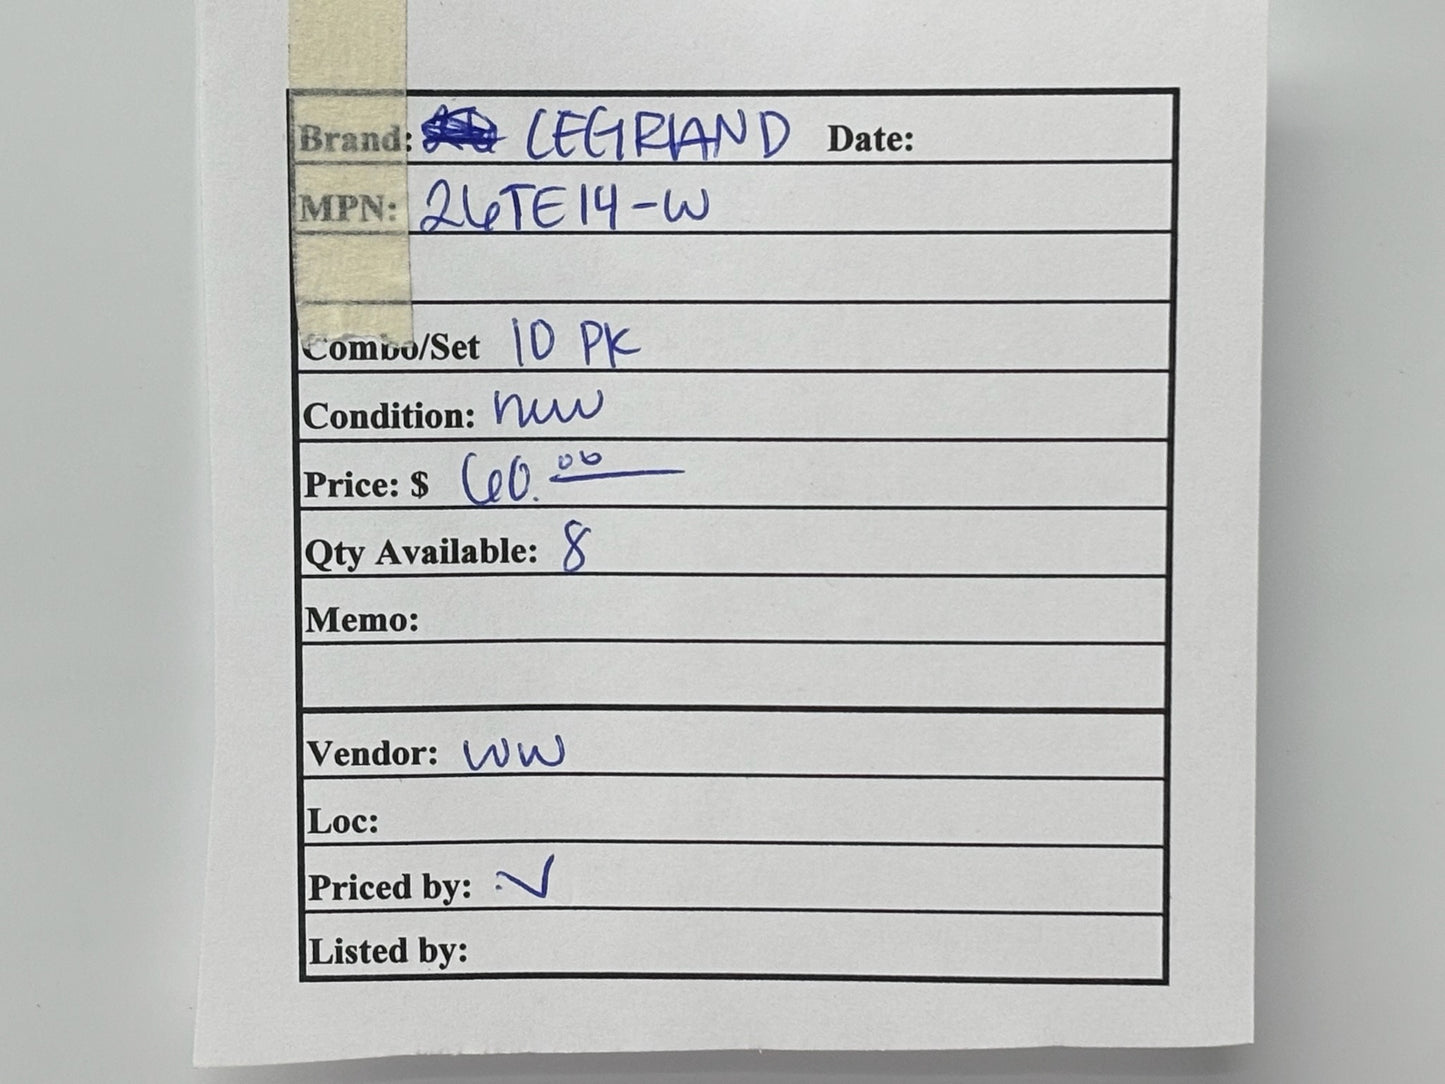 Brand: LEGRAND Date:
MPN: 26TE14-W
Combo/Set 10 PK
Condition: new
Price: $ 60.00
Qty Available: 8
Memo:
Vendor: WW
Loc:
Priced by: ✓
Listed by: